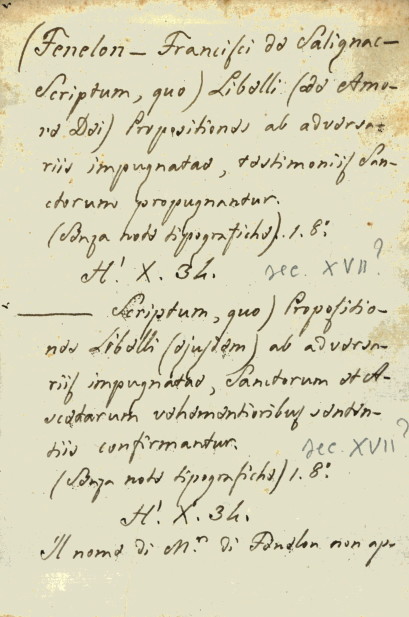 (Fenelon - Francisci de Salignac-
Scriptum, quo) Libelli (de Amo-
re Dei) Propositiones ab adversa-
riis impugnatae, testimoniis San-
ctorum propugnantur.
(Senza note tipografiche). 1. 8.°
H! X. 34. sec. XVII?
——— Scriptum, quo) Propositio-
nes Libelli (ejusdem) ab adversa-
riis impugnatae, Sanctorum et A-
scetarum vehementioribus senten-
tiis confirmantur. sec. XVII?
(Senza note tipografiche) 1. 8.°
H! X. 34.
Il nome di M.r di Fenelon non ap-